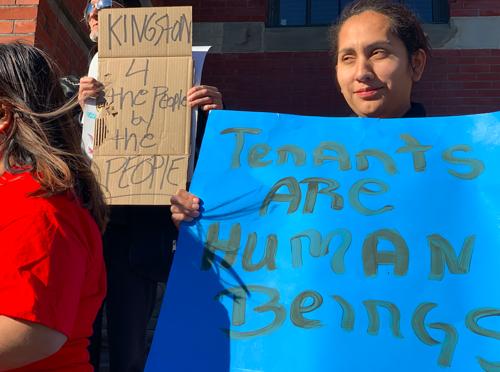 KINGSTON
4
the People
by
the
PEOPLE
Tenants
ARE
HUMAN
Beings